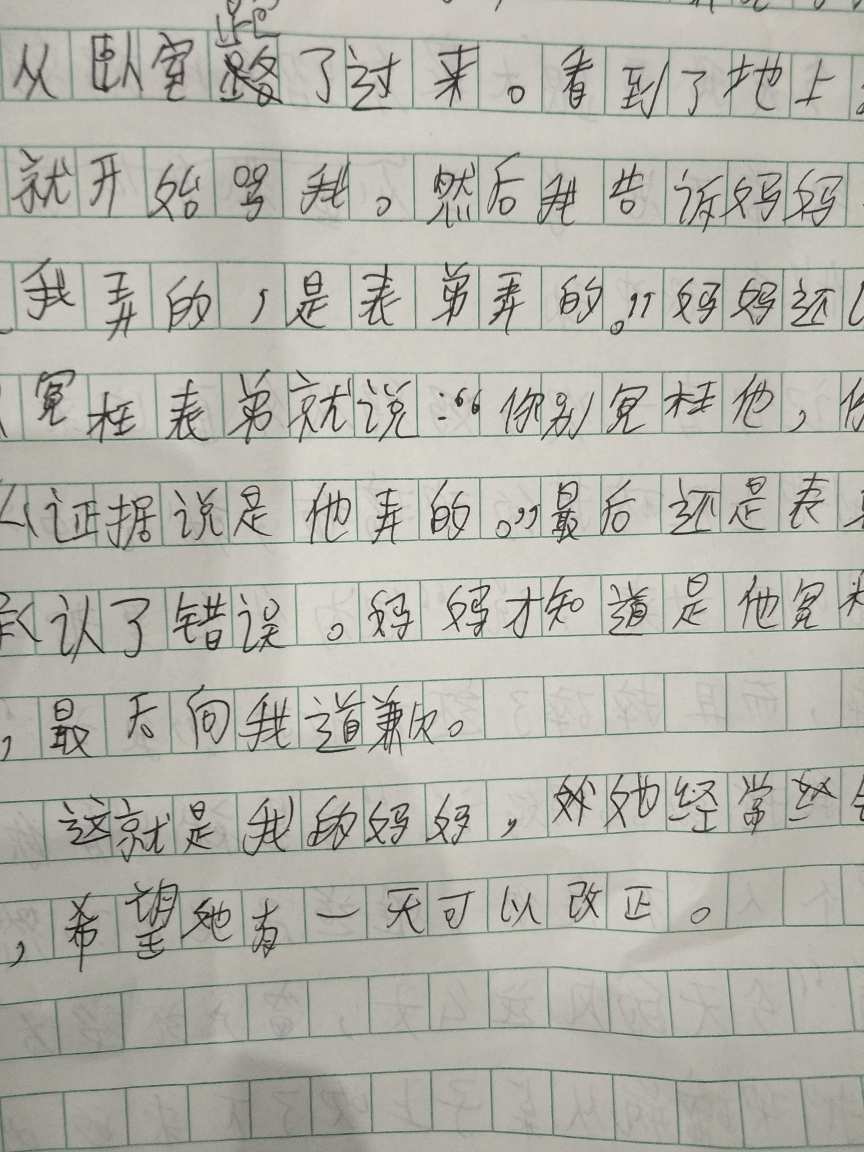 从卧室跑了过来。看到了地上
就开始骂我。然后我告诉妈妈
我弄的，是表弟弄的。”妈妈还以
冤枉表弟就说：“你别冤枉他，你
么证据说是他弄的。”最后还是表弟
承认了错误。妈妈才知道是他冤枉
，最后向我道歉。
这就是我的妈妈，她经常
，希望她有一天可以改正。